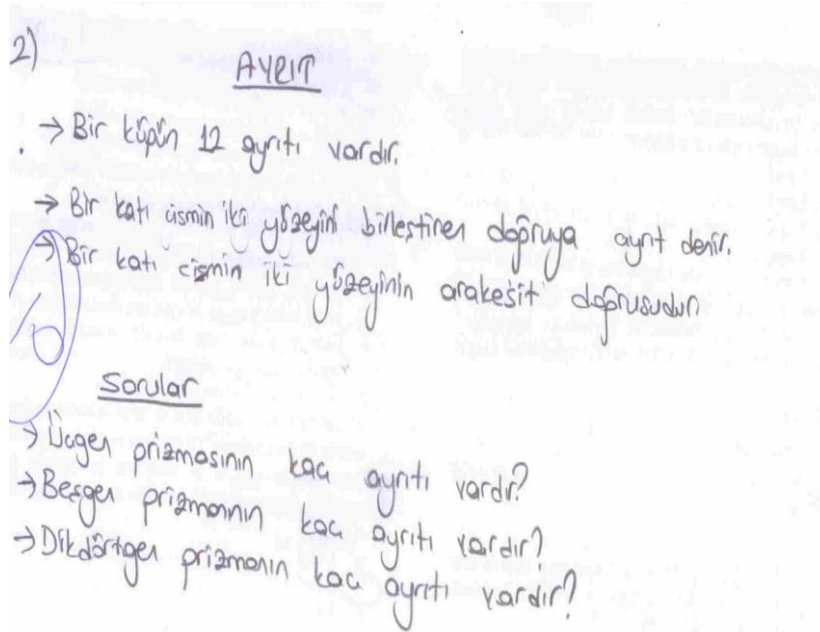 2)
AYRIT
→ Bir küpün 12 ayrıtı vardır.
→ Bir katı cismin iki yüzeyini birleştiren doğruya ayrıt denir.
→ Bir katı cismin iki yüzeyinin arakesit doğrusudur.
Sorular
→ Üçgen prizmasının kaç ayrıtı vardır?
→ Beşgen prizmanın kaç ayrıtı vardır?
→ Dikdörtgen prizmanın kaç ayrıtı vardır?